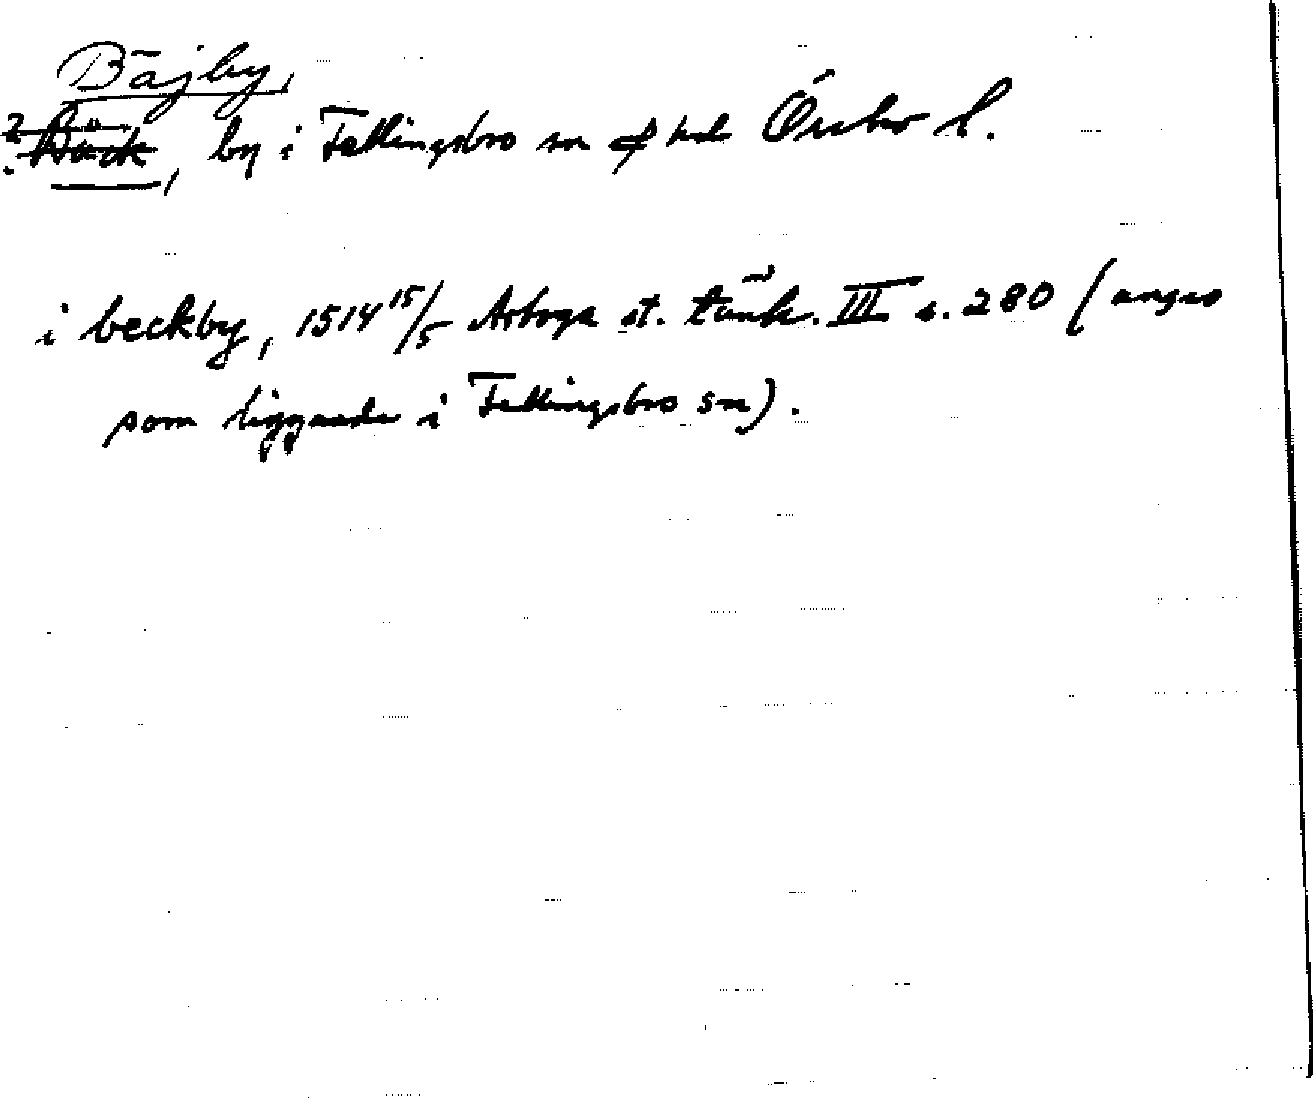 Bäjby,
? Bäck, by i Fellingsbro sn o hd Örebro l.
i beckby, 1514 15/5 Arboga st. tänk. III s. 280 (anges
som liggande i Fellingsbro sn).